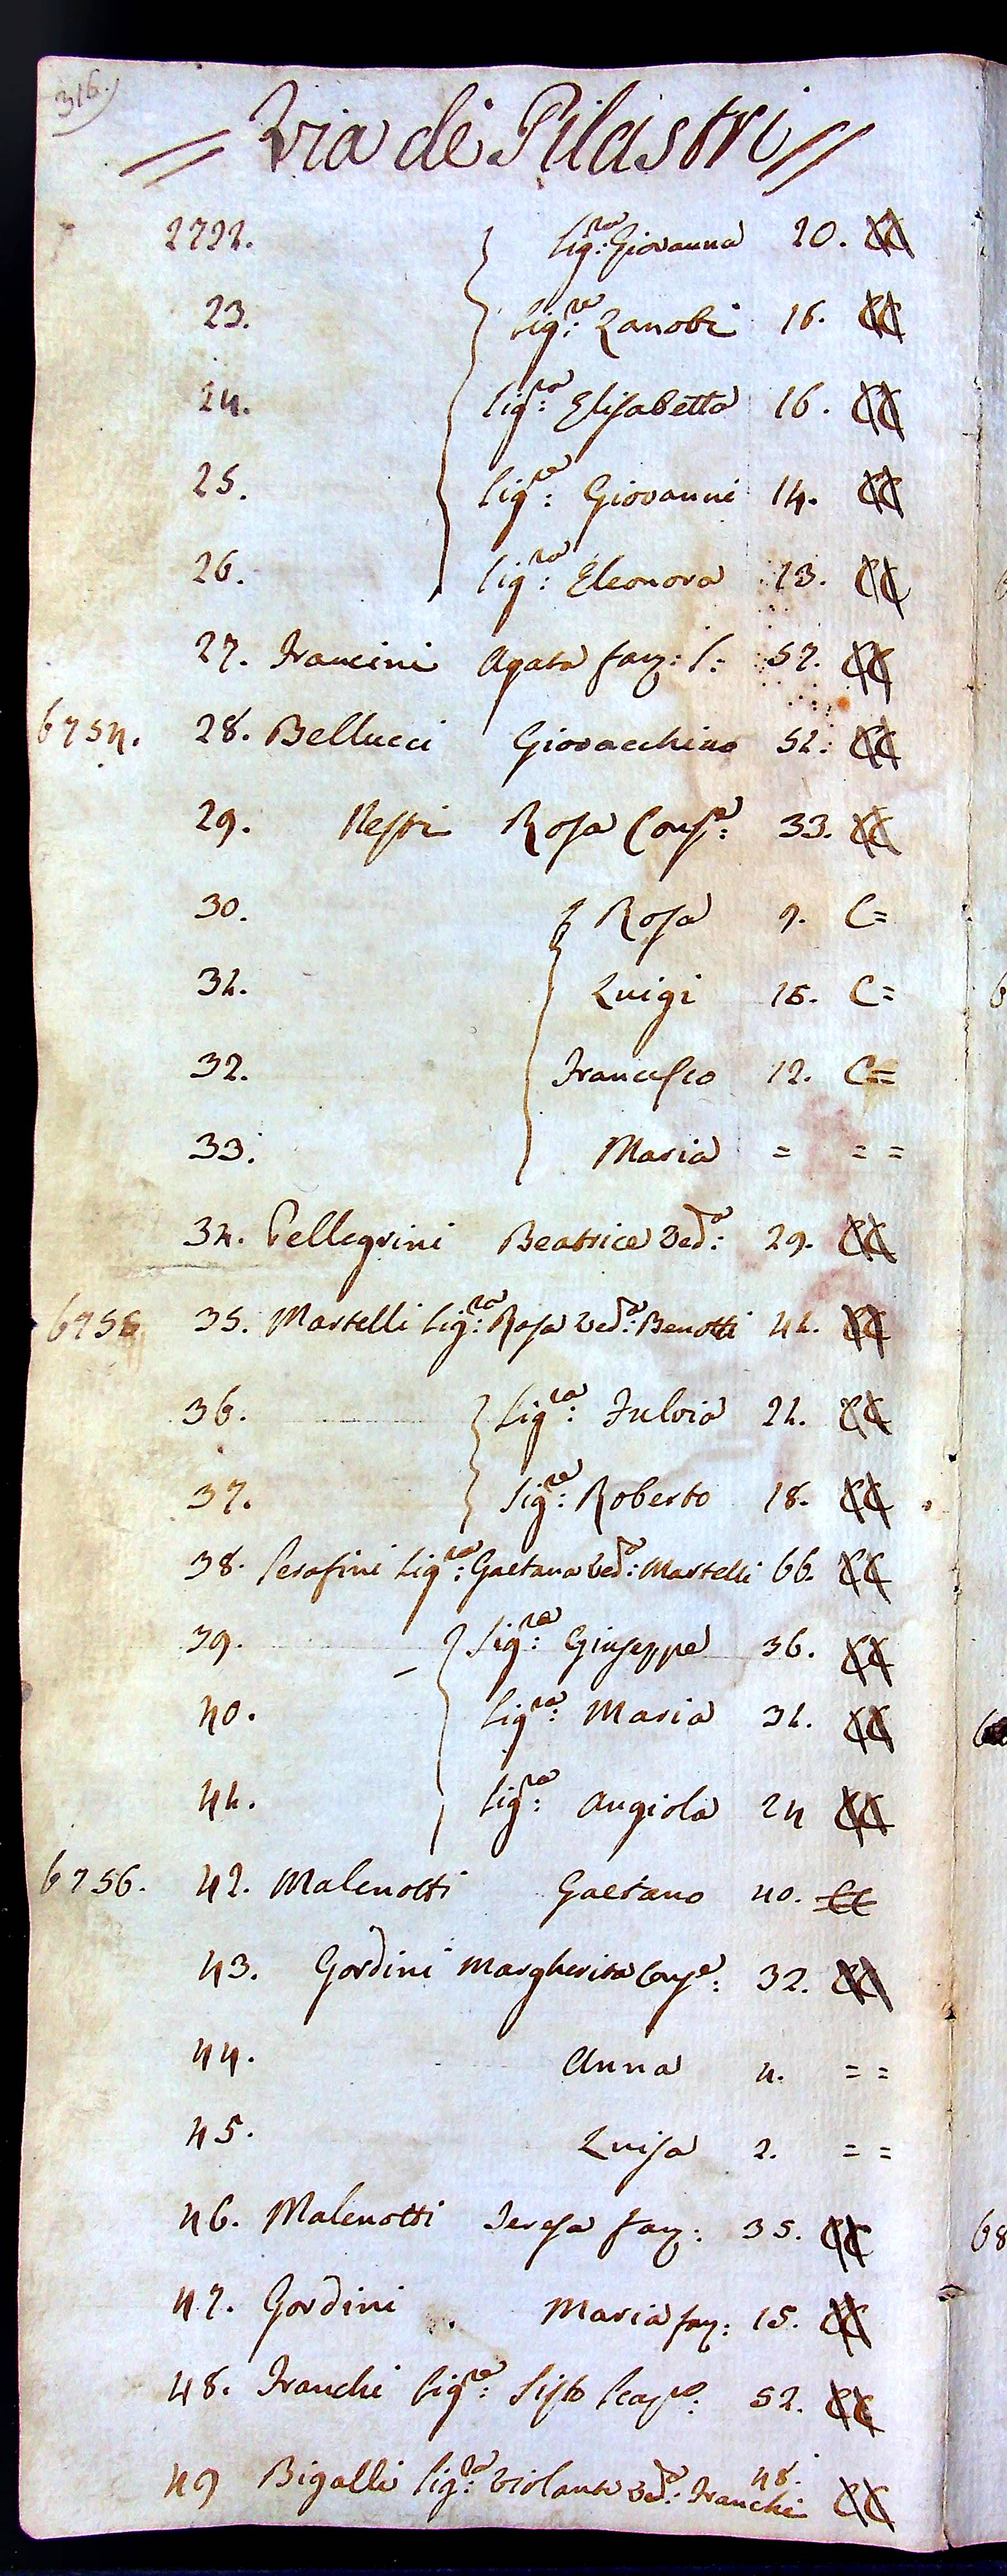 316.
= Via de Pilastri =
2722. Sig:ra Giovanna 20. CC
23. Sig:re Zanobi 16. CC
24. Sig:ra Elisabetta 16. CC
25. Sig:re Giovanni 14. CC
26. Sig:ra Eleonora 13. CC
27. Francini Agata fan: S: 57. CC
6754. 28. Bellucci Giovacchino 51. CC
29. Nesti Rosa Cons:e 33. CC
30. Rosa 9. C=
31. Luigi 15. C=
32. Francesco 12. C=
33. Maria = = =
34. Pellegrini Beatrice Ved:a 29. CC
6755 35. Martelli Sig:ra Rosa Ved:a Benotti 41. CC
36. Sig:ra Fulvia 21. CC
37. Sig:re Roberto 18. CC
38. Serafini Sig:ra Gaetana Ved:a Martelli 66. CC
39. Sig:re Giuseppe 36. CC
40. Sig:ra Maria 31. CC
41. Sig:ra Angiola 24 CC
6756. 42. Malenotti Gaetano 40. CC
43. Gordini Margherita Cons:e 32. CC
44. Anna 4. = =
45. Luisa 2. = =
46. Malenotti Teresa fan: 35. CC
47. Gordini Maria fan: 15. CC
48. Franchi Sig:re Sisto 52. CC
49 Bigalli Sig:ra Violante Ved:a Franchi 48. CC